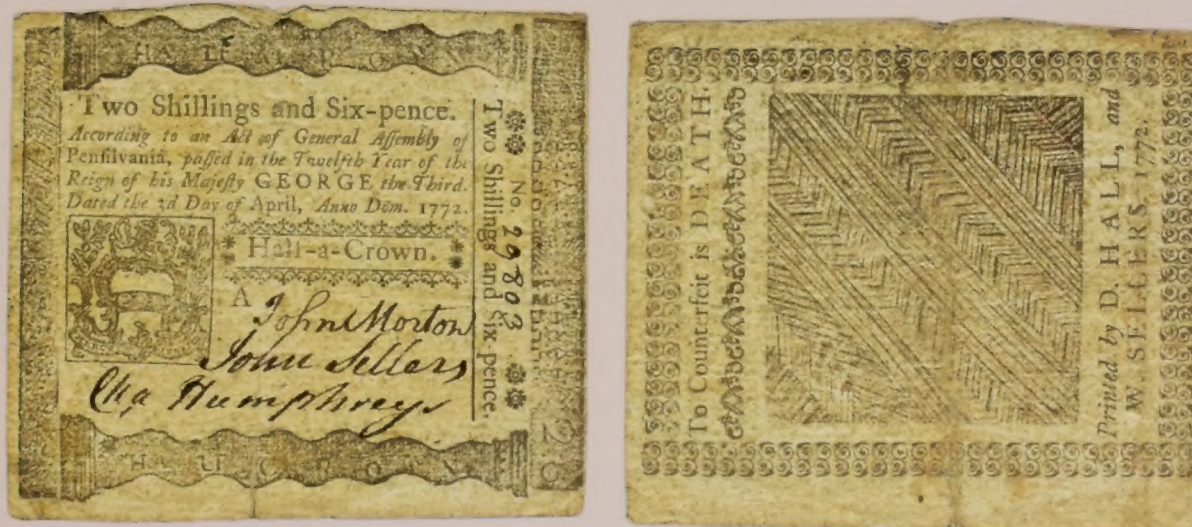 HALF CROWN
Two Shillings and Six-pence.
According to an Act of General Assembly of
Pensilvania, paſſed in the Twelfth Year of the
Reign of his Majeſty GEORGE the Third.
Dated the 3d Day of April, Anno Dom. 1772.
Half-a-Crown.
A
John Morton
John Sellers
Cha Humphreys
HALF CROWN
Two Shillings and Six pence.
No. 29803
To Counterfeit is DEATH.
Printed by D. HALL, and
W. SELLERS. 1772.